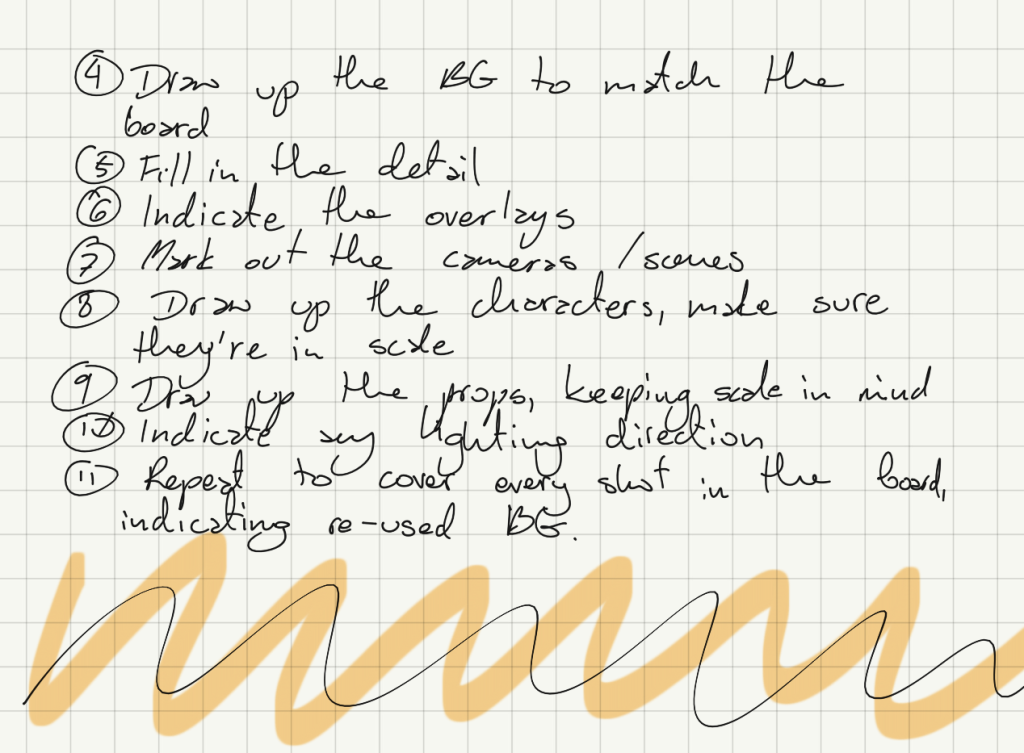 ④ Draw up the BG to match the
board
⑤ Fill in the detail
⑥ Indicate the overlays
⑦ Mark out the cameras /scenes
⑧ Draw up the characters, make sure
they're in scale
⑨ Draw up the props, keeping scale in mind
⑩ Indicate any lighting direction
⑪ Repeat to cover every shot in the board,
indicating re-used BG.